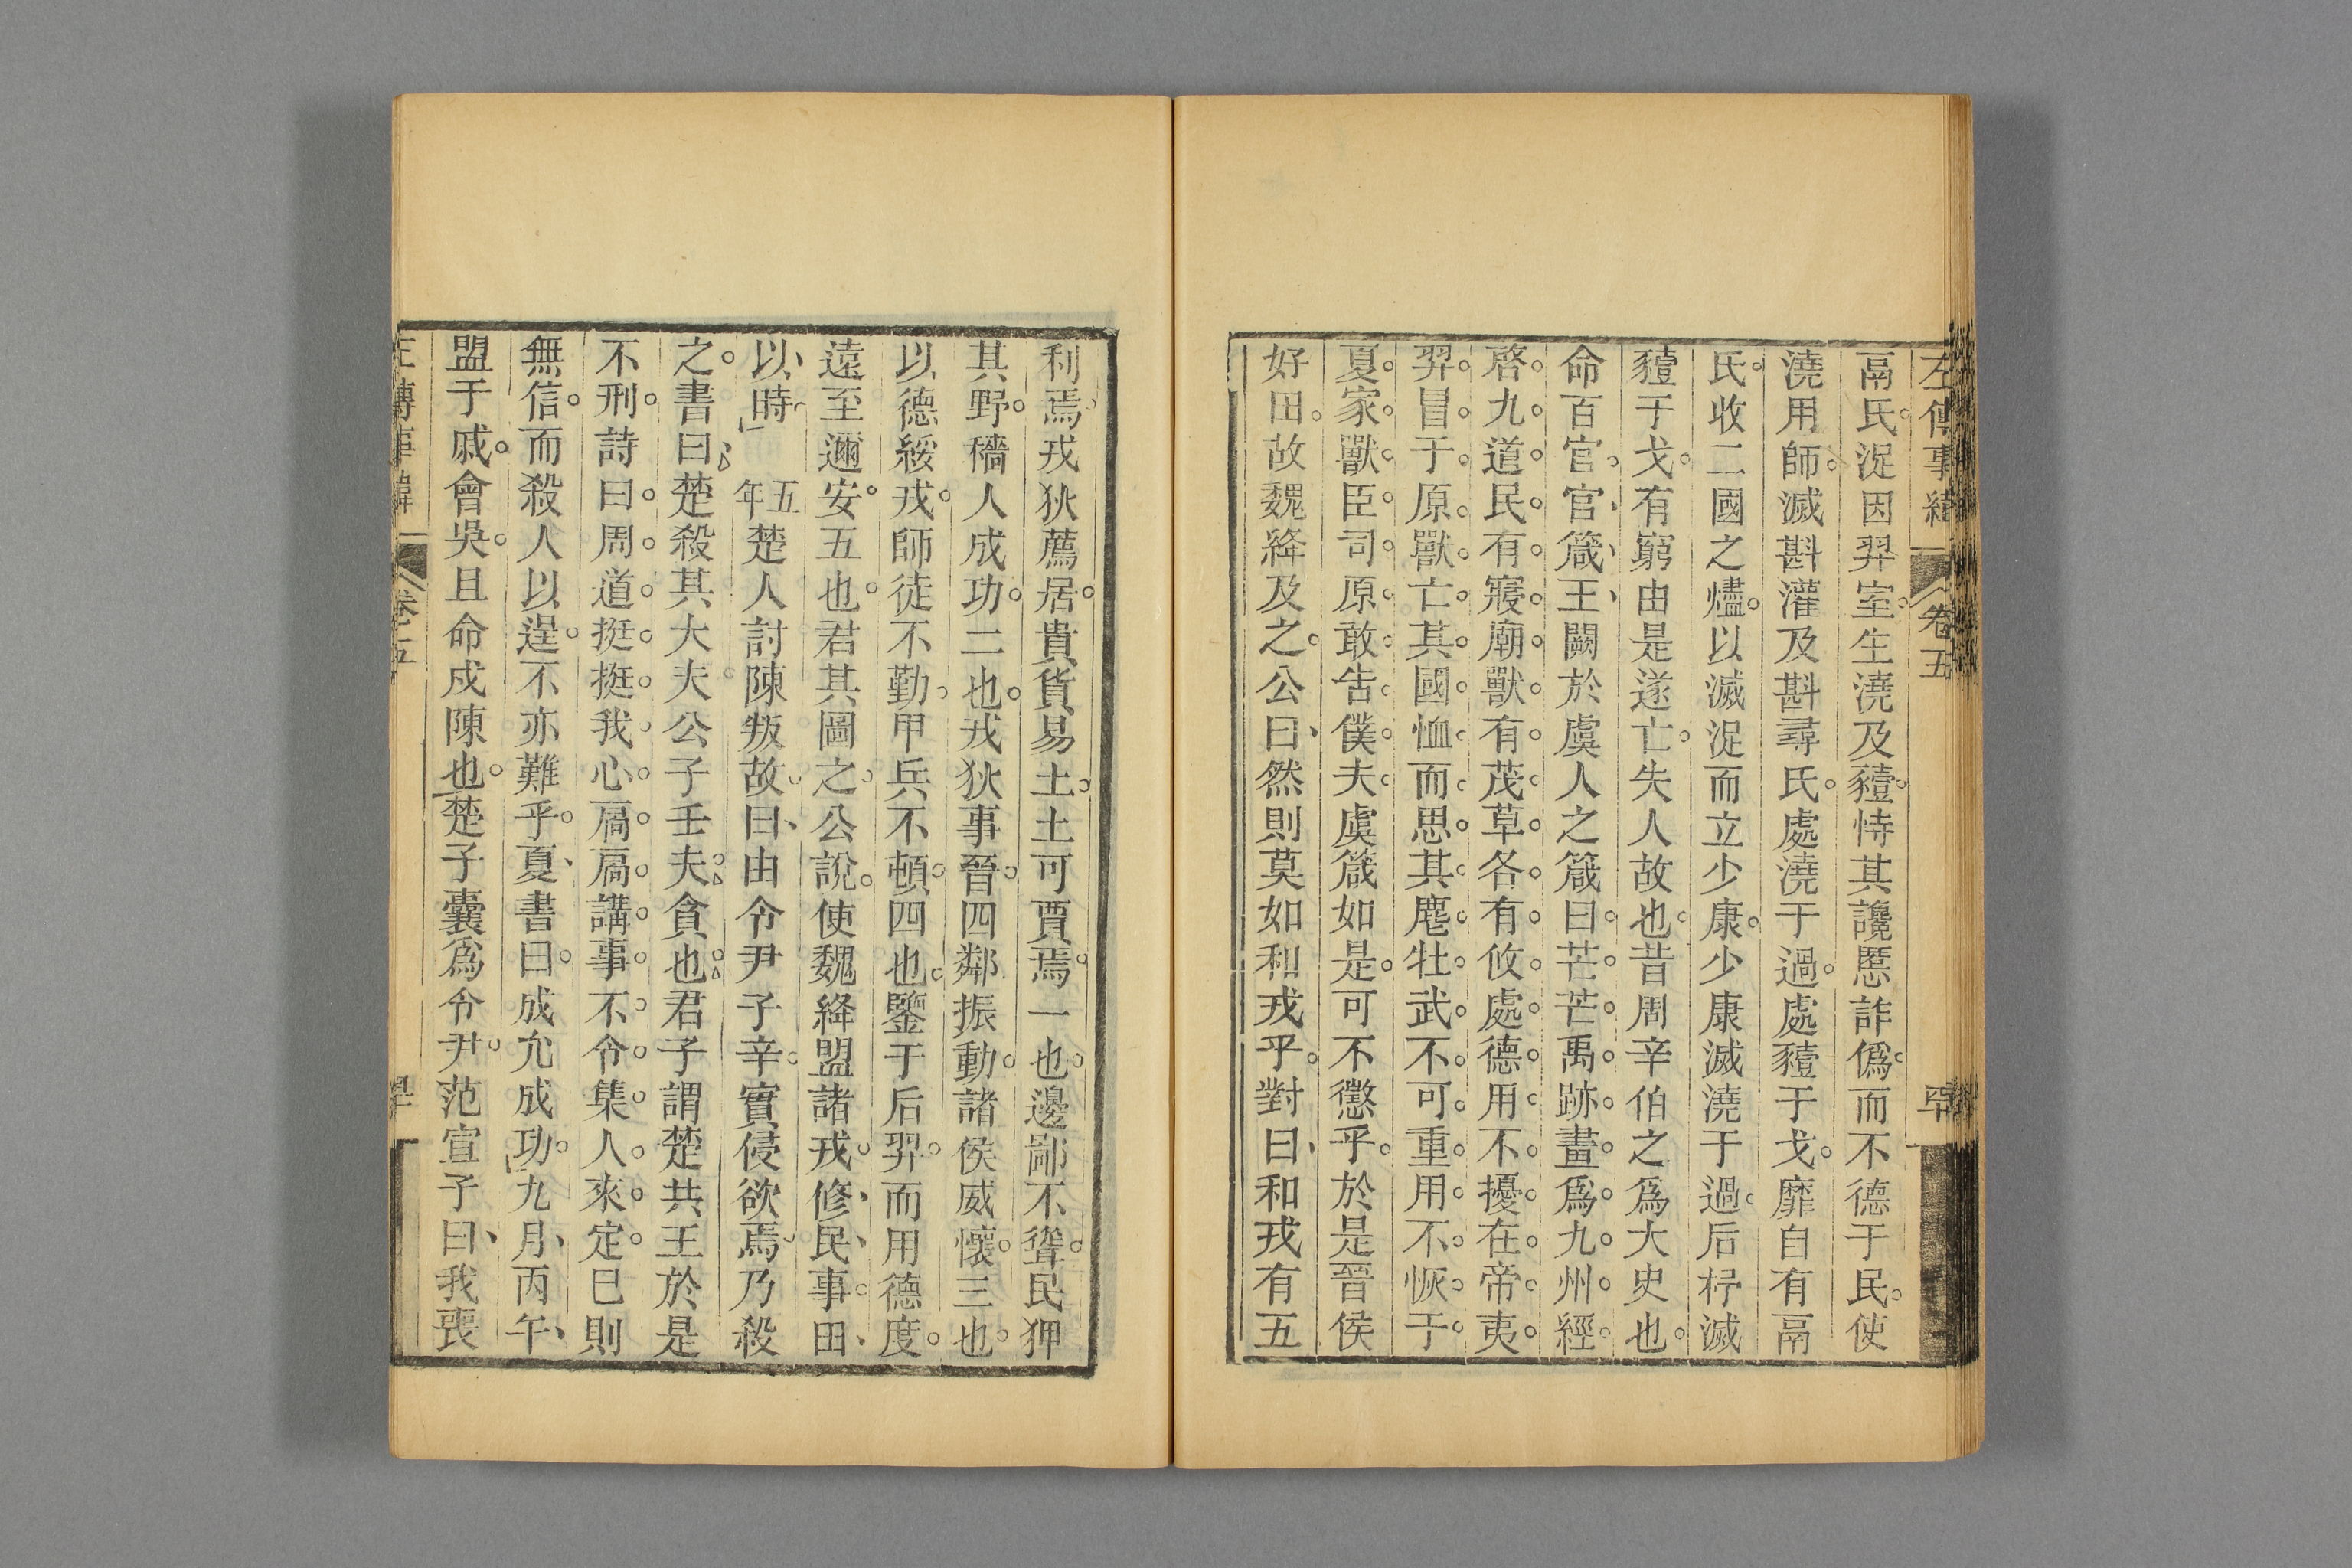 左傳事緯 卷五
鬲氏浞因羿室生澆及豷恃其讒慝詐僞而不德于民使
澆用師滅斟灌及斟尋氏處澆于過處豷于戈靡自有鬲
氏收二國之燼以滅浞而立少康少康滅澆于過后杼滅
豷于戈有窮由是遂亡失人故也昔周辛伯之爲大史也
命百官官箴王闕於虞人之箴曰芒芒禹跡畫爲九州經
啓九道民有寢廟獸有茂草各有攸處德用不擾在帝夷
羿冒于原獸亡其國恤而思其麀牡武不可重用不恢于
夏家獸臣司原敢告僕夫虞箴如是可不懲乎於是晉侯
好田故魏絳及之公曰然則莫如和戎乎對曰和戎有五
利焉戎狄薦居貴貨易土土可賈焉一也邊鄙不聳民狎
其野穡人成功二也戎狄事晉四鄰振動諸侯威懷三也
以德綏戎師徒不勤甲兵不頓四也鑒于后羿而用德度
遠至邇安五也君其圖之公說使魏絳盟諸戎修民事田
以時 五年楚人討陳叛故曰由令尹子辛實侵欲焉乃殺
之書曰楚殺其大夫公子壬夫貪也君子謂楚共王於是
不刑詩曰周道挺挺我心扃扃講事不令集人來定已則
無信而殺人以逞不亦難乎夏書曰成允成功九月丙午
盟于戚會吳且命戍陳也楚子囊爲令尹范宣子曰我喪
左傳事緯 卷五